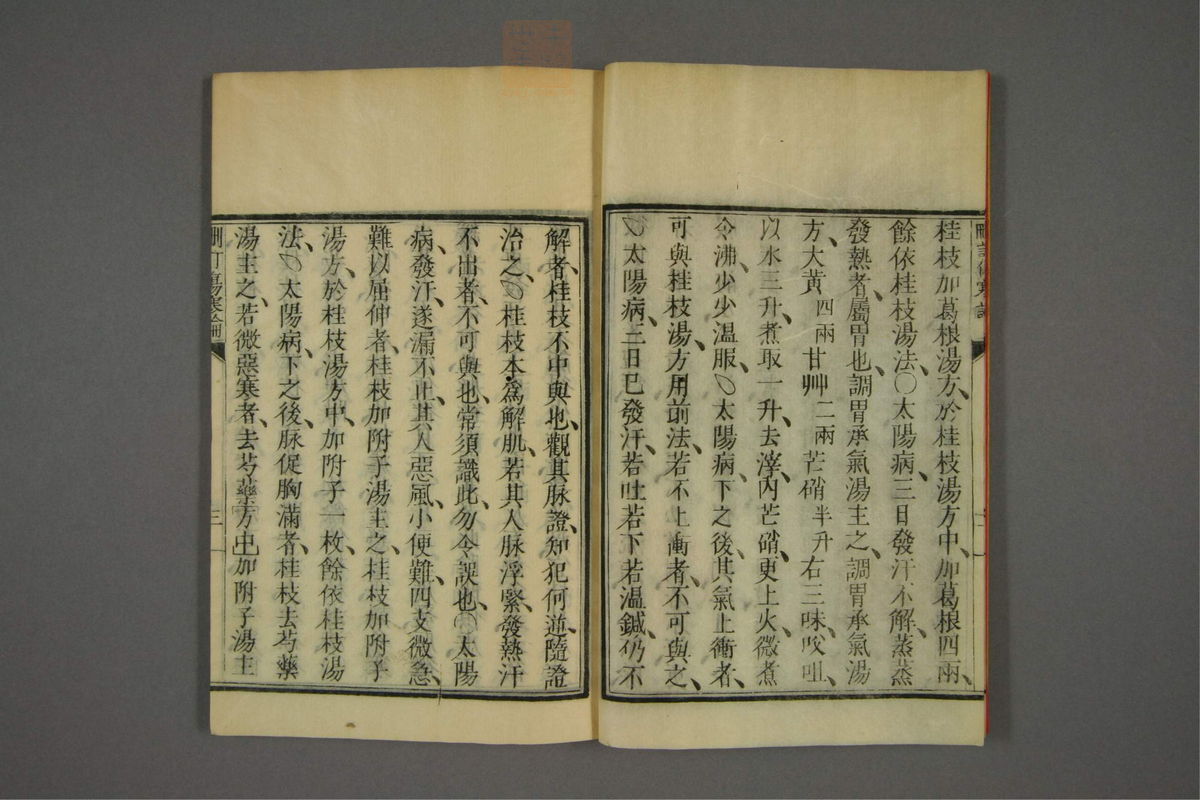 桂枝加葛根湯方、於桂枝湯方中、加葛根四兩、
餘依桂枝湯法、〇太陽病、三日發汗不解、蒸蒸
發熱者、屬胃也、調胃承氣湯主之、調胃承氣湯
方、大黃四兩甘艸二兩芒硝半升右三味、㕮咀、
以水三升、煮取一升、去滓、內芒硝、更上火、微煮
令沸、少少溫服、〇太陽病、下之後、其氣上衝者、
可與桂枝湯、方用前法、若不上衝者、不可與之、
〇太陽病、三日、已發汗、若吐、若下、若溫鍼、仍不
解者、桂枝不中與也、觀其脉證、知犯何逆、隨證
治之、〇桂枝本爲解肌、若其人脉浮緊、發熱汗
不出者、不可與也、常須識此、勿令誤也、〇太陽
病、發汗、遂漏不止、其人惡風、小便難、四支微急、
難以屈伸者、桂枝加附子湯主之、桂枝加附子
湯方、於桂枝湯方中、加附子一枚、餘依桂枝湯
法、〇太陽病、下之後、脉促胸滿者、桂枝去芍藥
湯主之、若微惡寒者、去芍藥方中、加附子湯主
刪訂傷寒論
三